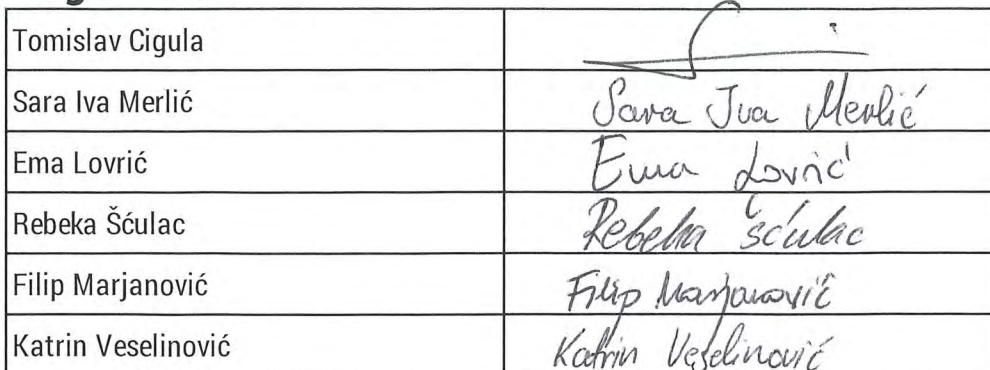 Tomislav Cigula
Sara Iva Merlić Sara Iva Merlić
Ema Lovrić Ema Lovrić
Rebeka Šćulac Rebeka Šćulac
Filip Marjanović Filip Marjanović
Katrin Veselinović Katrin Veselinović